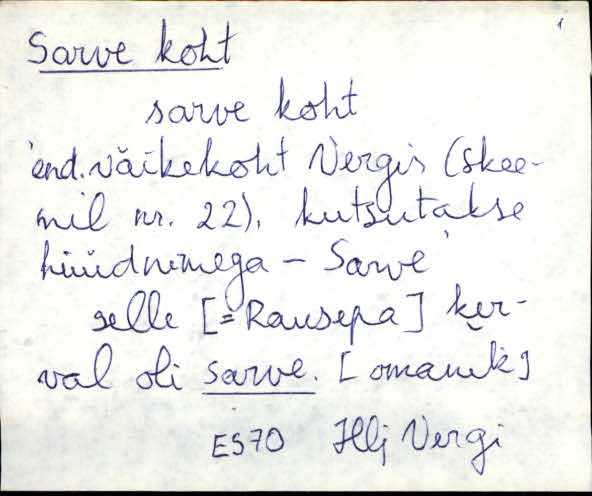 Sarve koht
sarve koht
'end. väikekoht Vergis (skee-
mil nr. 22), kutsutakse
hüüdnimega – Sarve'
selle [= Rausepa] kɛr-
val oli sarve. [omanik]
ES70 Hlj Vergi